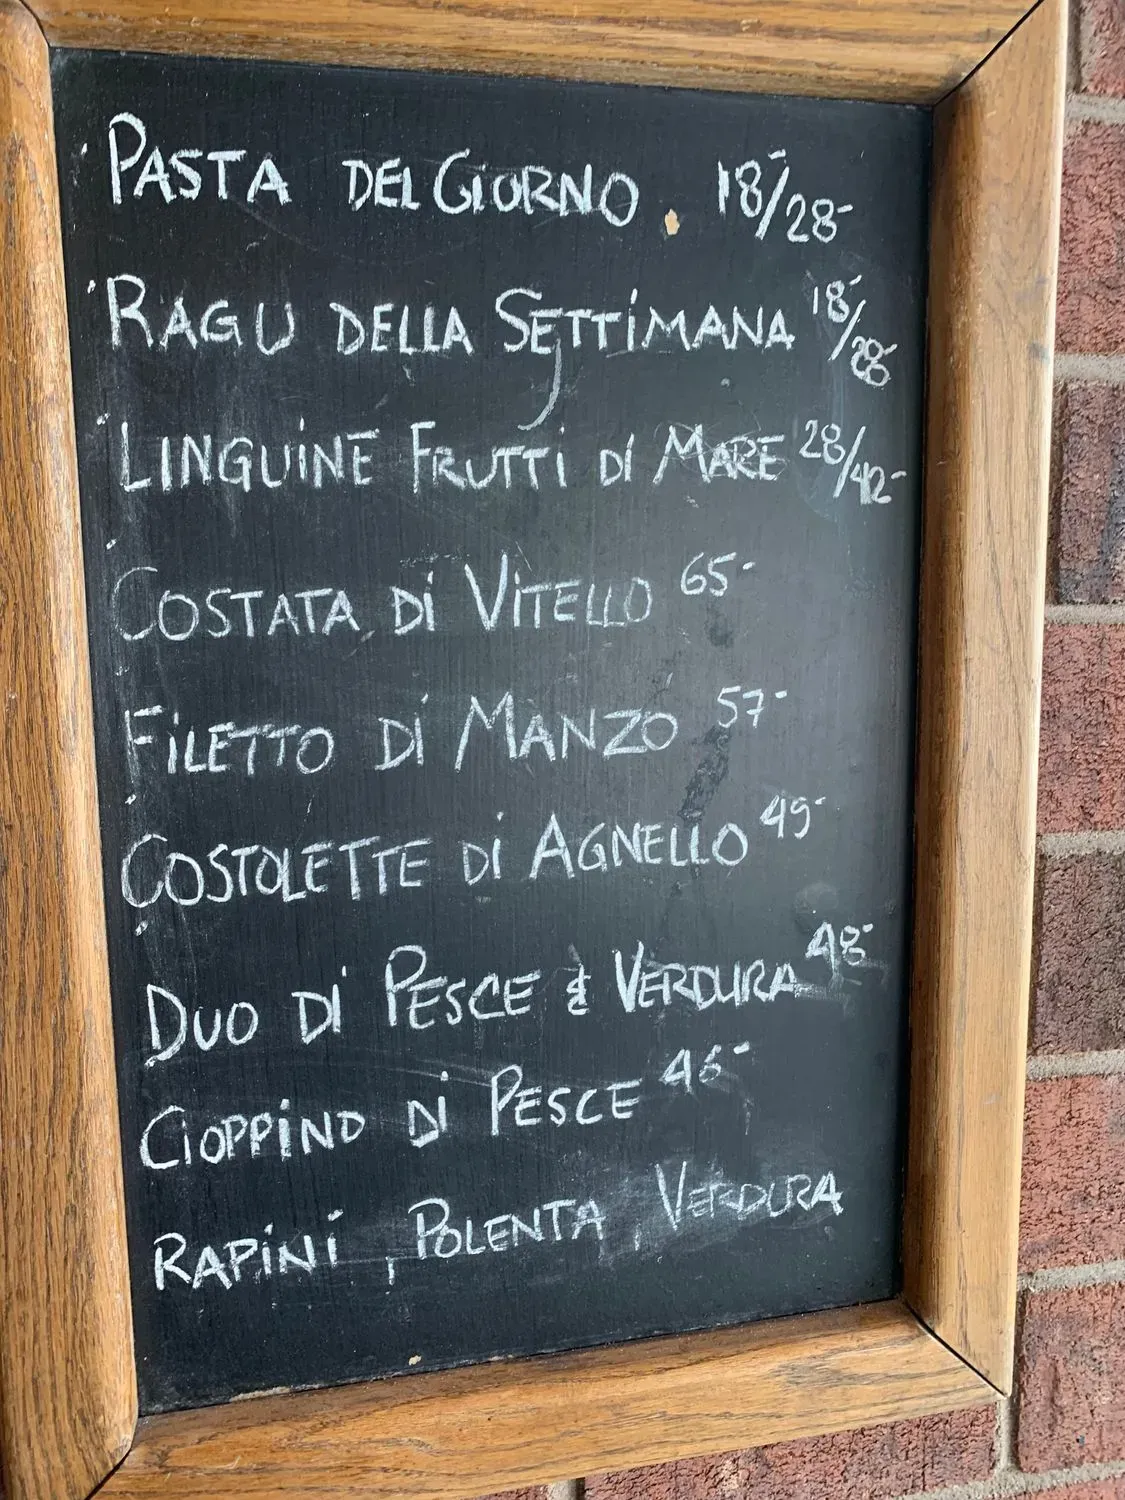 PASTA DEL GIORNO. 18/28-
RAGU DELLA SETTIMANA 18/28
LINGUINE FRUTTI DI MARE 28/42-
COSTATA DI VITELLO 65-
FILETTO DI MANZO 57-
COSTOLETTE DI AGNELLO 49-
DUO DI PESCE & VERDURA 48-
CIOPPINO DI PESCE 46-
RAPINI, POLENTA, VERDURA